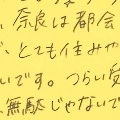 、奈良は都会
、とても住みや
いです。つらい受
無駄じゃないで